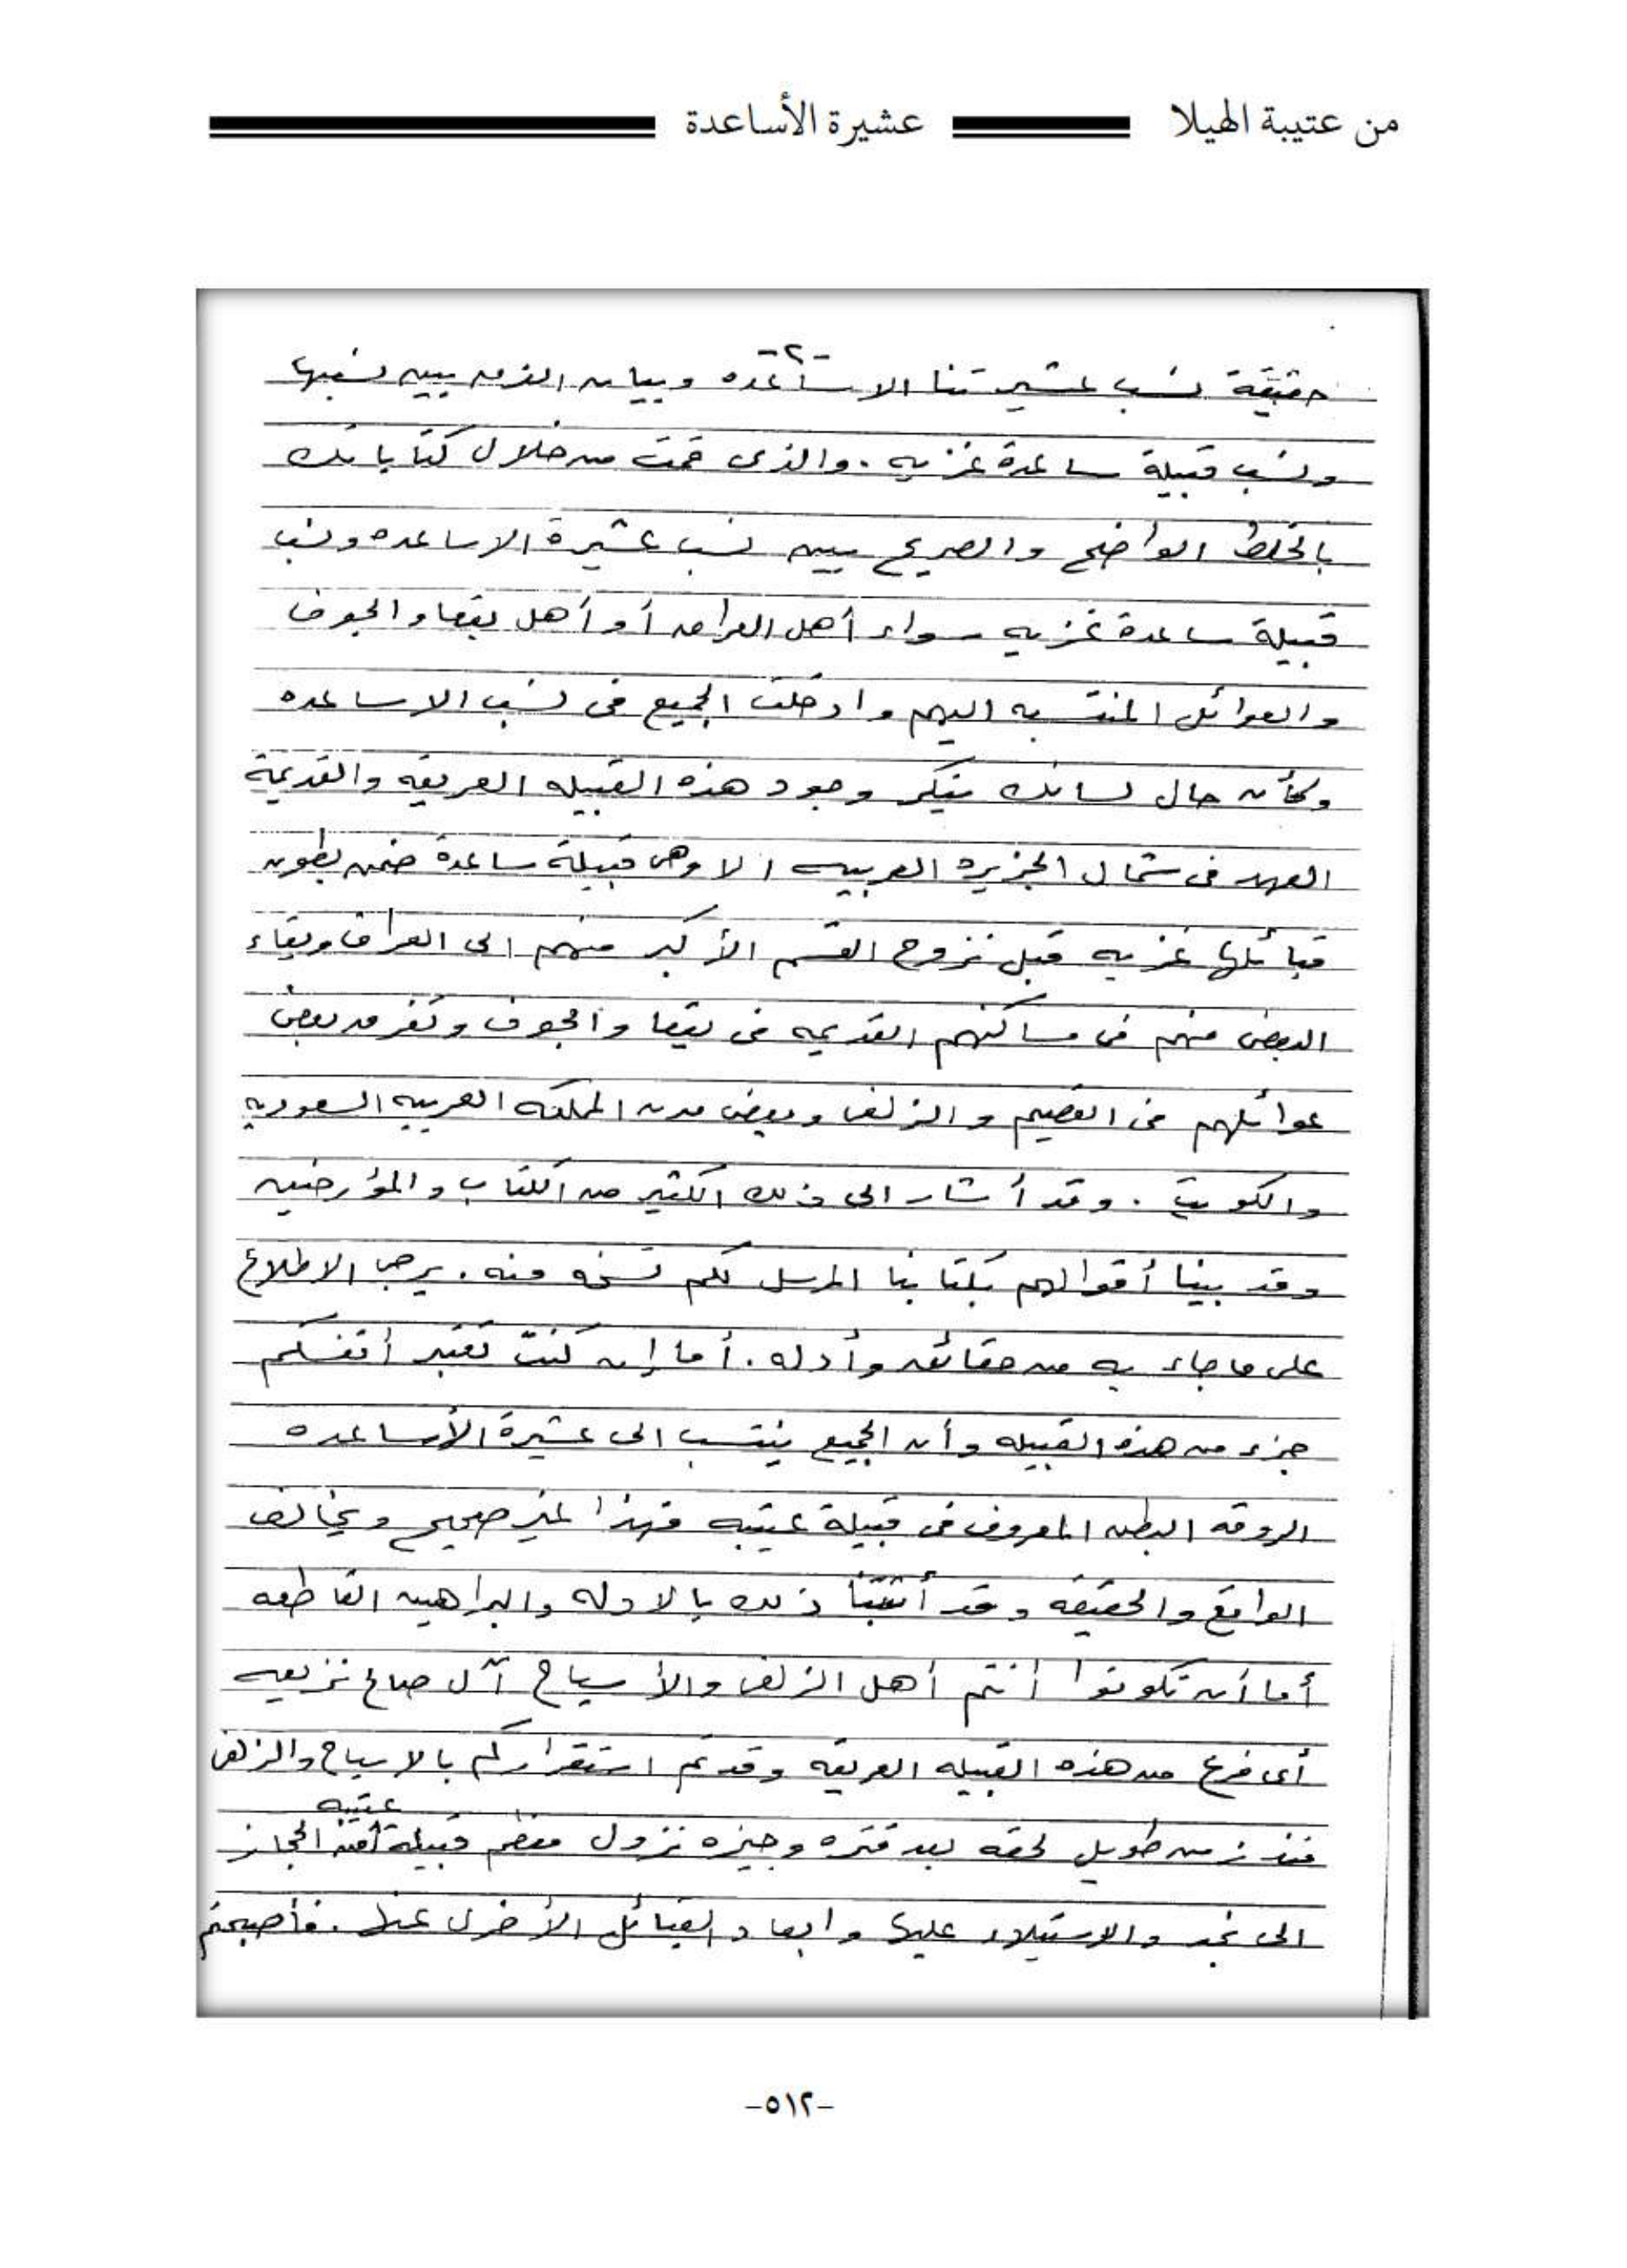 من عتيبة الهيلا عشيرة الأساعدة
-٢-
حقيقة نسب عشيرتنا الاساعده وبيان الفرق بين نسبها
ونسب قبيلة ساعدة غزيه . والذى قمت من خلال كتاباتك
بالخلط الواضح والصريح بين نسب عشيرة الاساعده ونسب
قبيلة ساعدة غزيه سواء أهل العراق أو أهل بقعا والجوف
والعوائل المنتسبه اليهم وادخلت الجميع فى نسب الاساعده
وكأن حال لسانك ينكر وجود هذه القبيله العريقه والقديمة
العهد فى شمال الجزيره العربيه الا وهى قبيلة ساعدة ضمن بطون
قبائلها غزيه قبل نزوح القسم الأكبر منهم الى العراق وبقاء
البعض منهم فى مساكنهم القديمه فى بقعا والجوف وتفرق بعض
عوائلهم فى القصيم والزلفى وبعض مدن المملكه العربيه السعوديه
والكويت . وقد أشار الى ذلك الكثير من الكتاب والمؤرخين
وقد بينا أقوالهم بكتابنا المرسل لكم نسخه منه . يرجى الاطلاع
على ماجاء به من حقائق وأدله . أما إن كنت تعتبر أنفسكم
جزء من هذه القبيله وأن الجميع ينتسب الى عشيرة الأساعده
الروقه البطن المعروف فى قبيلة عتيبه فهذا غير صحيح ويخالف
الواقع والحقيقه وقد أثبتنا ذلك بالادله والبراهين القاطعه
أما أن تكونوا أنتم أهل الزلفى والأسياح آل صالح نزيعه
أى فرع من هذه القبيله العريقه وقد تم استقراركم بالاسياح والزلفى
عتيبه
منذ زمن طويل لحقه بعد فتره وجيزه نزول معظم قبيلة من الحجاز
الى نجد والاستيلاء عليها وابعاد القبائل الأخرى عنها . فأصبحتم
-٥١٢-